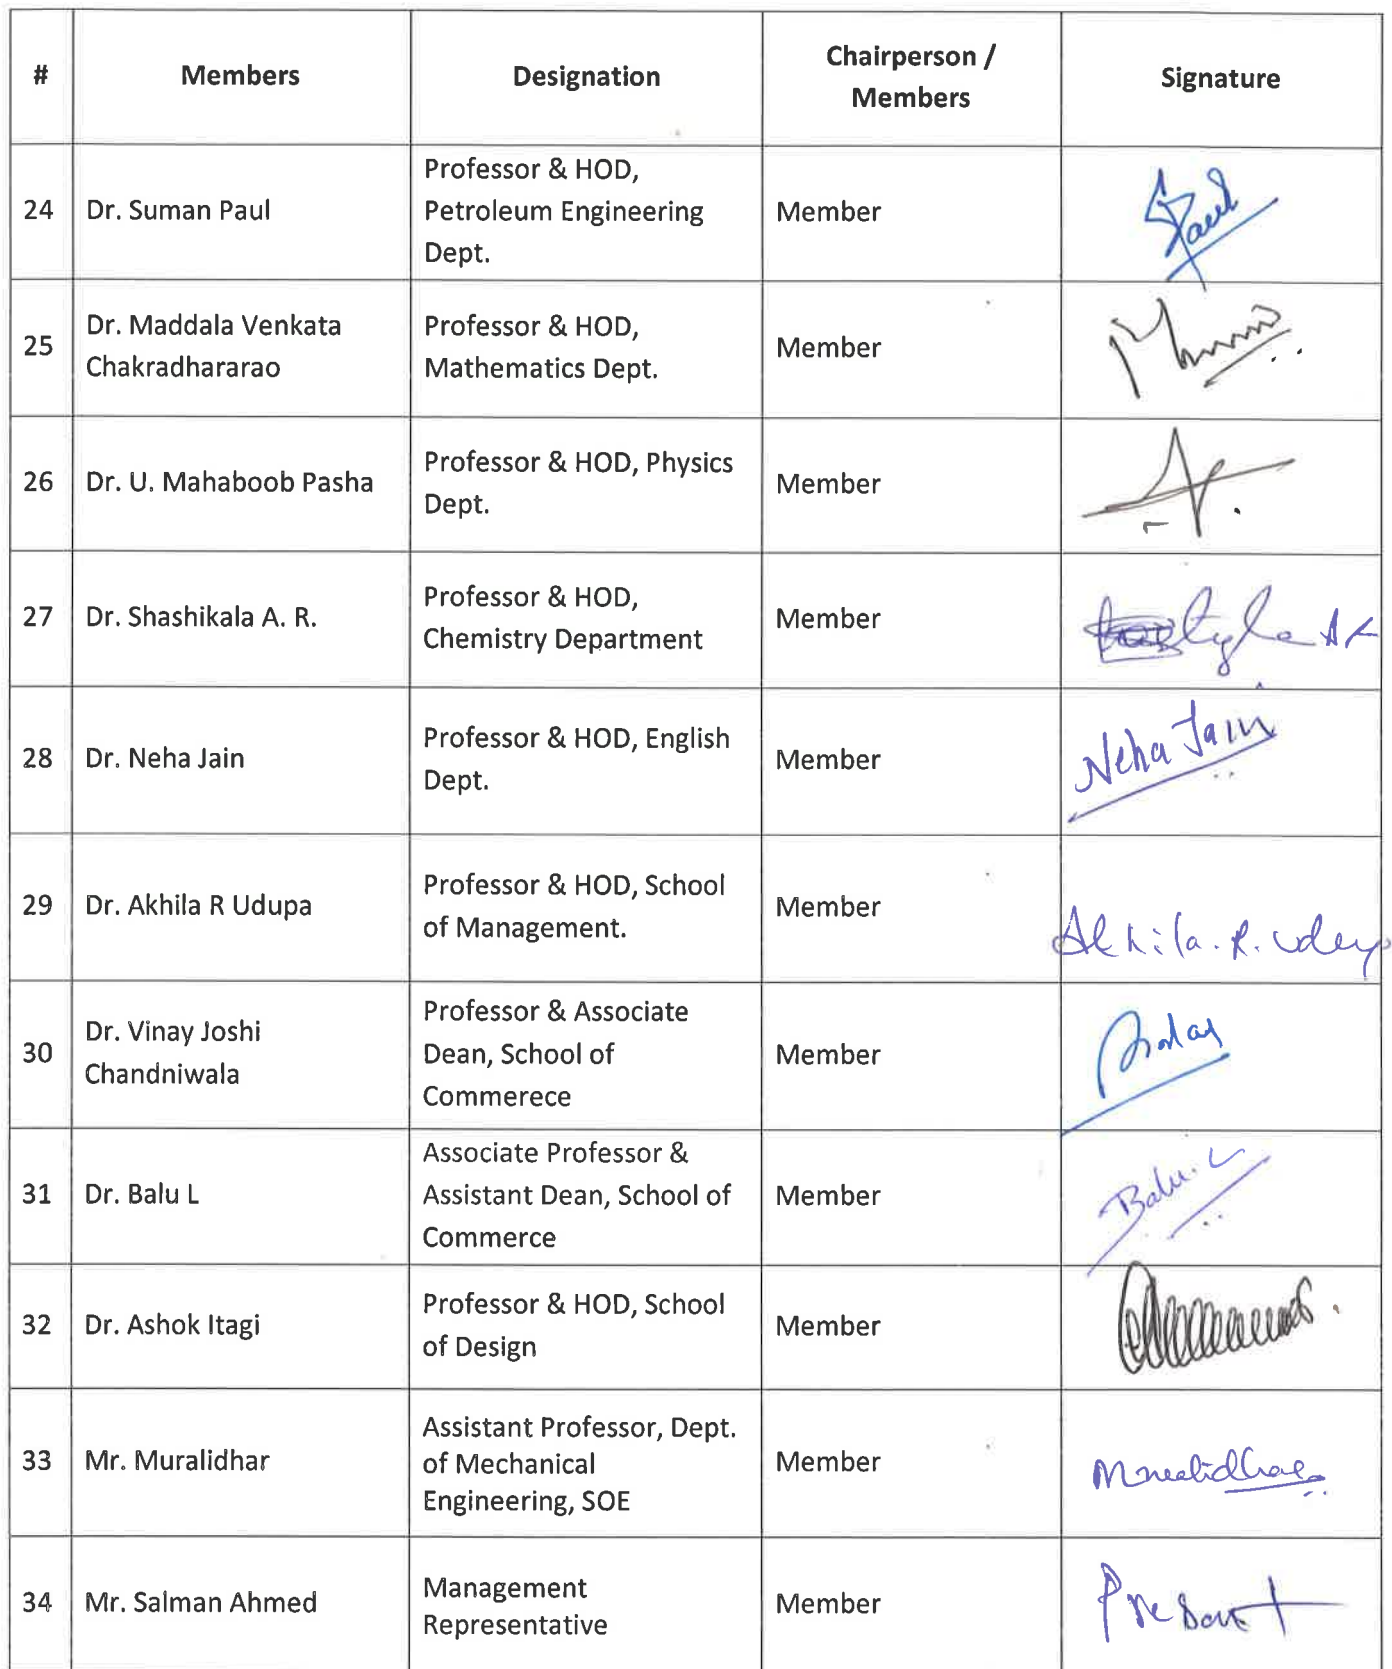 # Members Designation Chairperson / Members Signature
24 Dr. Suman Paul Professor & HOD, Petroleum Engineering Dept. Member Paul
25 Dr. Maddala Venkata Chakradhararao Professor & HOD, Mathematics Dept. Member
26 Dr. U. Mahaboob Pasha Professor & HOD, Physics Dept. Member
27 Dr. Shashikala A. R. Professor & HOD, Chemistry Department Member
28 Dr. Neha Jain Professor & HOD, English Dept. Member Neha Jain
29 Dr. Akhila R Udupa Professor & HOD, School of Management. Member Akhila. R. Udupa
30 Dr. Vinay Joshi Chandniwala Professor & Associate Dean, School of Commerece Member
31 Dr. Balu L Associate Professor & Assistant Dean, School of Commerce Member Balu. L
32 Dr. Ashok Itagi Professor & HOD, School of Design Member
33 Mr. Muralidhar Assistant Professor, Dept. of Mechanical Engineering, SOE Member Muralidhar
34 Mr. Salman Ahmed Management Representative Member Present